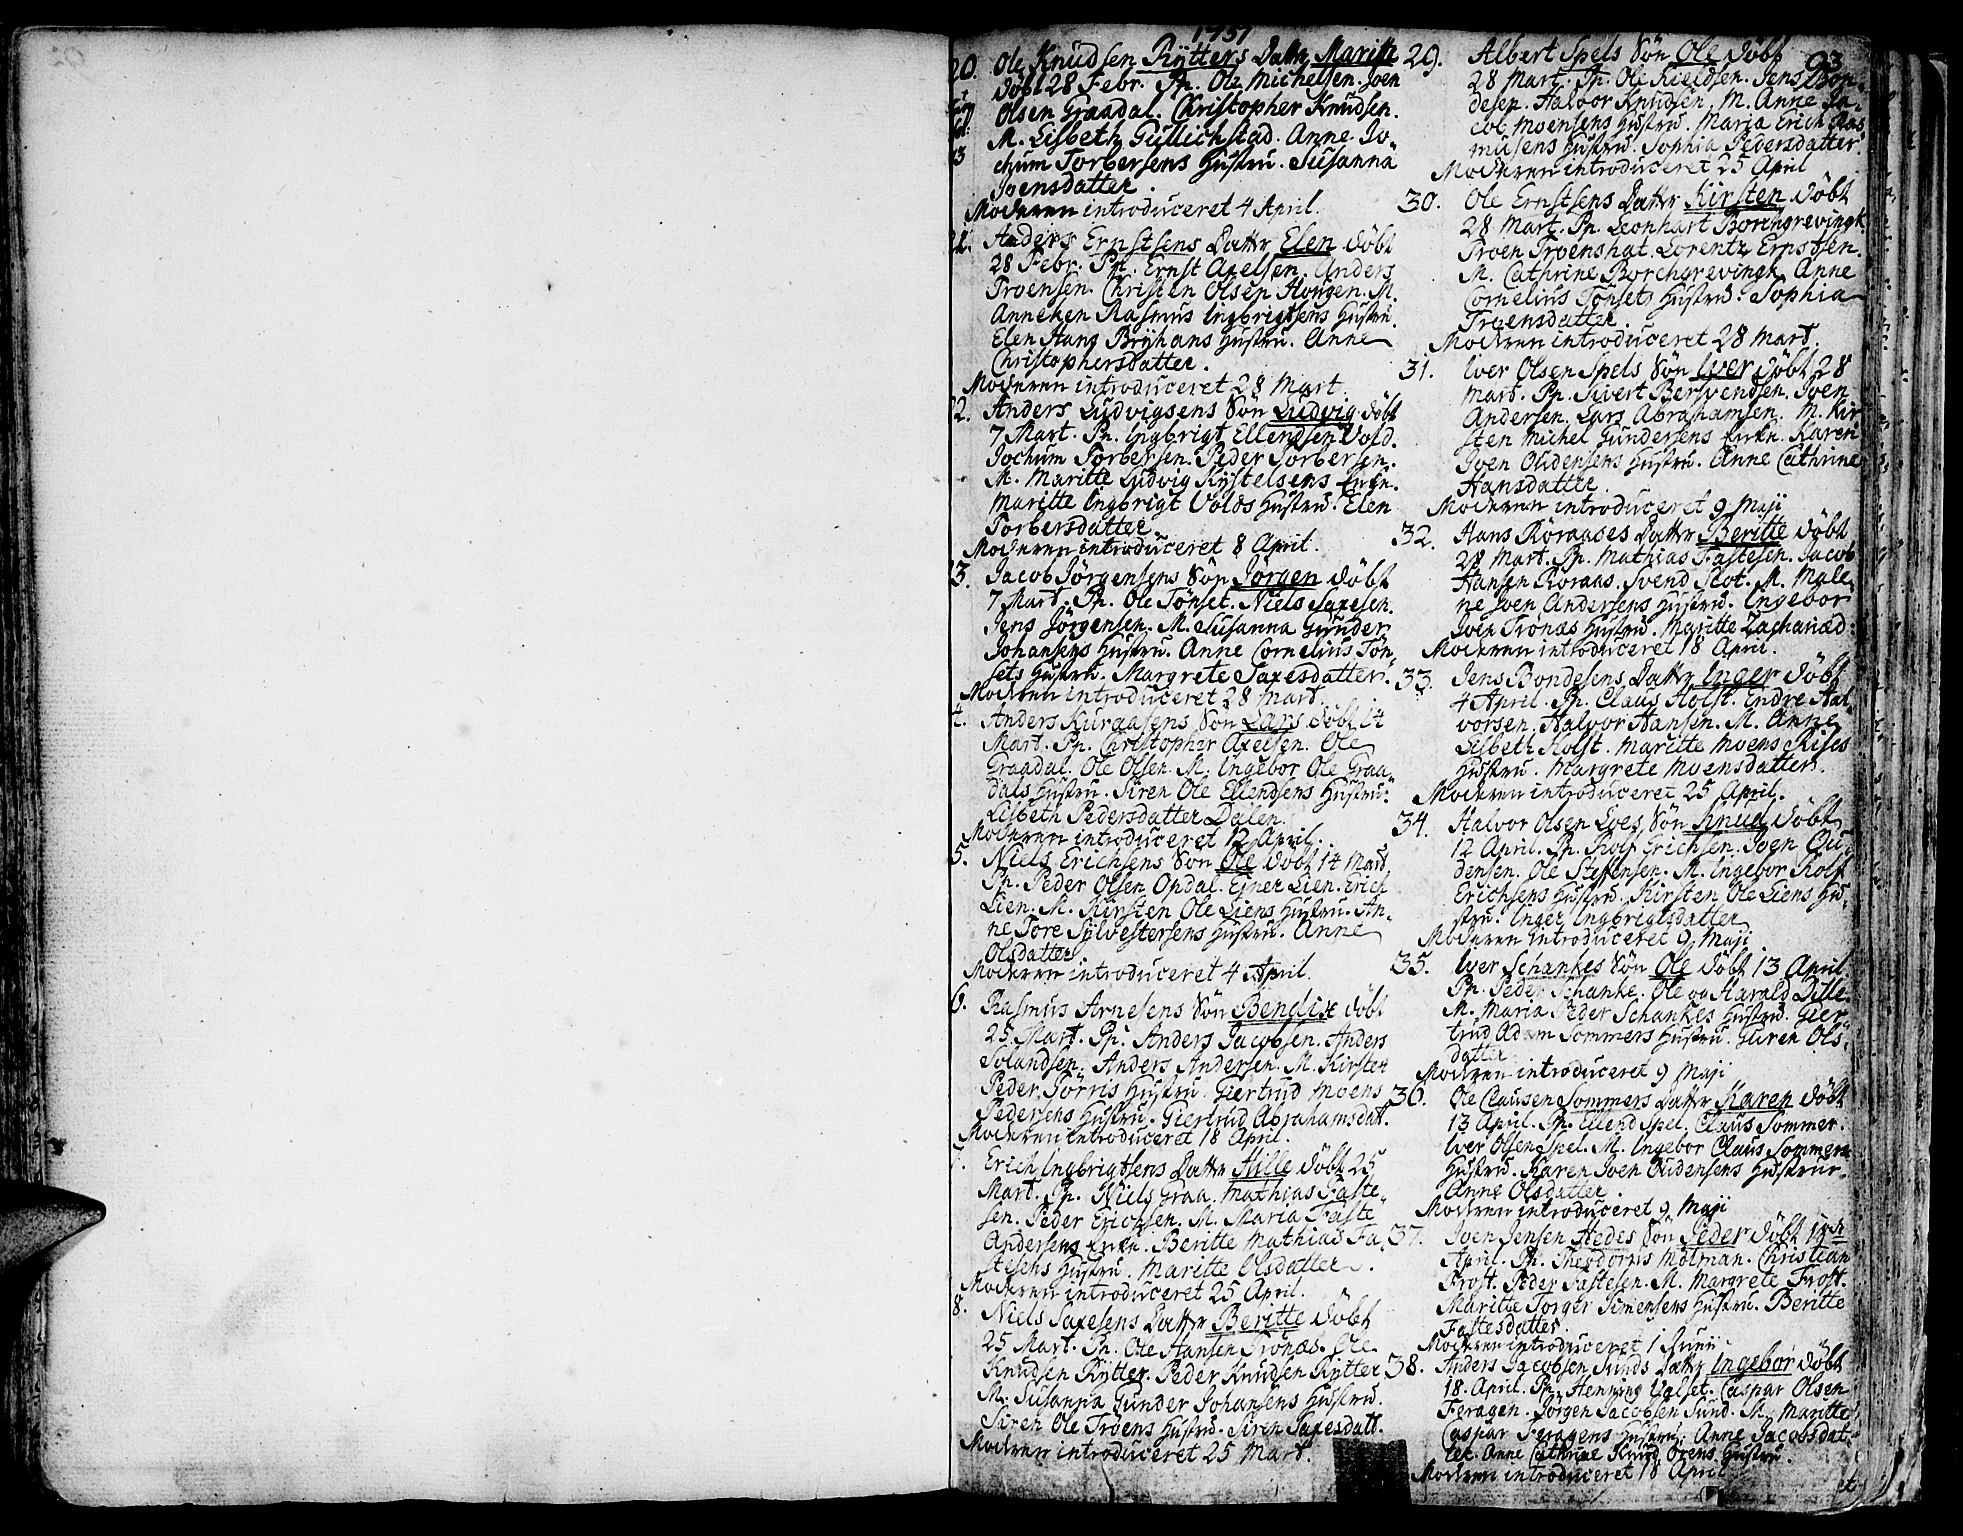 1751
93
20. Ole Knudsen Rÿtters Datter Maritte
döbt 28 Febr. Pp. Ole Michelsen. Joen
Olsen Graadal. Christopher Knudsen.
M. Lisbeth Gullichstad. Anne Jo-
chum Torbersens Hustru. Susanna
Joensdatter.
Moderen introduceret 4 April.
21. Anders Ernstsens Datter Elen döbt
28 Febr. Pp. Ernst Axelsen. Anders
Troensen. Christen Olsen Hougen. M.
Anneken Rasmus Ingbrigtsens Hustru.
Elen Hans Brÿhans Hustru. Anne
Christophersdatter.
Moderen introduceret 28 Mart.
22. Anders Ludvigsens Sön Ludvig döbt
7 Mart. Pp. Ingbrigt Ellendsen Vold.
Jochum Torbersen. Peder Torbersen.
M. Maritte Ludvig Kÿstelsens Enke.
Maritte Ingbrigt Volds Hustru. Elen
Torbersdatter
Moderen introduceret 8 April.
23. Jacob Jörgensens Sön Jörgen döbt
7 Mart. Pp. Ole Tönset. Niels Saxesen.
Jens Jörgensen. M. Susanna Gunder
Johansens Hustru. Anne Cornelius Tön-
sets Hustru. Margrete Saxesdatter.
Moderen introduceret 28 Mart.
Anders Kuraasens Sön Lars döbt 14
Mart. Pp. Christopher Axelsen. Ole
Graadal. Ole Olsen. M. Ingebor Ole Graa-
dals Hustru. Siren Ole Ellendsens Hustru.
Lisbeth Pedersdatter Dalen.
Moderen introduceret 12 April.
5. Niels Erichsens Sön Ole döbt 14 Mart.
Pp. Peder Olsen Opdal. Ejner Lien. Erich
Lien. M. Kirsten Ole Liens Hustru. An-
ne Tore Sÿlvestersens Hustru. Anne
Olsdatter
Moderen introduceret 4 April.
6. Rasmus Arnesens Sön Bendix döbt
25 Mart. Pp. Anders Jacobsen. Anders
Solandsen. Anders Andersen. M. Kirsten
Peder Törris Hustru. Giertrud Moens
Pedersens Hustru. Giertrud Abrahamsdat.
Moderen introduceret 18 April.
7. Erich Ingbrigtsens Datter Hille döbt 25
Mart. Pp. Niels Graa. Mathias Faste-
sen. Peder Ericssen. M. Maria Faste
Andersens Enke. Beritte Mathias Fa-
stesens Hustru. Maritte Olsdatter.
Moderen introduceret 25 April.
8. Niels Saxesens Datter Beritte döbt
25 Mart. Pp. Ole Hansen Tronæs. Ole
Knudsen Rÿtter. Peder Knudsen Rÿtter
M. Susanna Gunder Johansens Hustru.
Siren Ole Troens Hustru. Siren Saxesdatt.
Moderen introduceret 25 Mart.
29. Albert Spels Sön Ole döbt
28 Mart. Pp. Ole Kieldsen. Jens Bon-
desen. Halvor Knudsen. M. Anne Ja-
cob Moensens Hustru. Maria Erich Ras-
musens Hustru. Sophia Pedersdatter.
Moderen introduceret 25 April
30. Ole Ernstsens Datter Kirsten döbt
28 Mart. Pp. Leonhart Borchgrevingk
Troen Troenshat. Lorentz Ernstsen.
M. Cathrine Borchgrevingk. Anne
Cornelius Tönsets Hustru. Sophia
Troensdatter.
Moderen introduceret 28 Mart.
31. Iver Olsen Spels Sön Iver döbt 28
Mart. Pp. Sivert Bersvendsen. Joen
Andersen. Lars Abrahamsen. M. Kir
sten Michel Gundersens Enke. Karen
Joen Oudensens Hustru. Anne Cathrine
Hansdatter
Moderen introduceret 9 Maji
32. Hans Röraases Datter Beritte döbt
28 Mart. Pp. Mathias Fastesen. Jacob
Hansen Roraas. Svend Scot. M. Male-
ne Joen Andersens Hustru. Ingebor
Joen Tronæs Hustru. Maritte Zachariæd:
Moderen introduceret 18 April.
33. Jens Bondesens Datter Inger döbt
4 April. Pp. Claus Holst. Endre Hal-
vorsen. Halvor Hansen. M. Anne
Lisbeth Holst. Maritte Moens Rises
Hustru. Margrete Moensdatter.
Moderen introduceret 25 April.
34. Halvor Olsen Loes Sön Knud döbt
12 April. Pp. Rolf Erichsen. Joen Ou-
densen. Ole Steffensen. M. Ingebor Rolf
Erichsens Hustru. Kirsten Ole Liens Hu-
stru. Inger Ingbrigtsdatter
Moderen introduceret 9 Maji
35. Iver Schankes Sön Ole döbt 13 April.
Pp. Peder Schanke. Ole og Harald Dille.
M. Maria Peder Schankes Hustru. Gier-
trud Adam Sommers Hustru. Guren Ols-
datter.
Moderen introduceret 9 Maji
36. Ole Clausen Sommers Datter Karen döbt
13 April. Pp. Ellend Spel. Claus Sommer.
Iver Olsen Spel. M. Ingebor Claus Sommers
Hustru. Karen Joen Oudensens Hustru.
Anne Olsdatter.
Moderen introduceret 9 Maji
37. Joen Jensen Hedes Sön Peder döbt
April. Pp. Theodorus Molman. Christian
Frost. Peder Fastesen. M. Margrete Frost.
Maritte Torger Simensens Hustru. Beritte
Fastesdatter.
Moderen introduceret 1 Junii
38. Anders Jacobsen Sunds Datter Ingebor döbt
18. April. Pp. Henning Valset. Caspar Olsen
Feragen. Jörgen Jacobsen Sund. M. Maritte
Caspar Feragens Hustru. Anne Jacobsdat-
ter. Anne Cathrine Knud Hustru.
Moderen introduceret 18 April